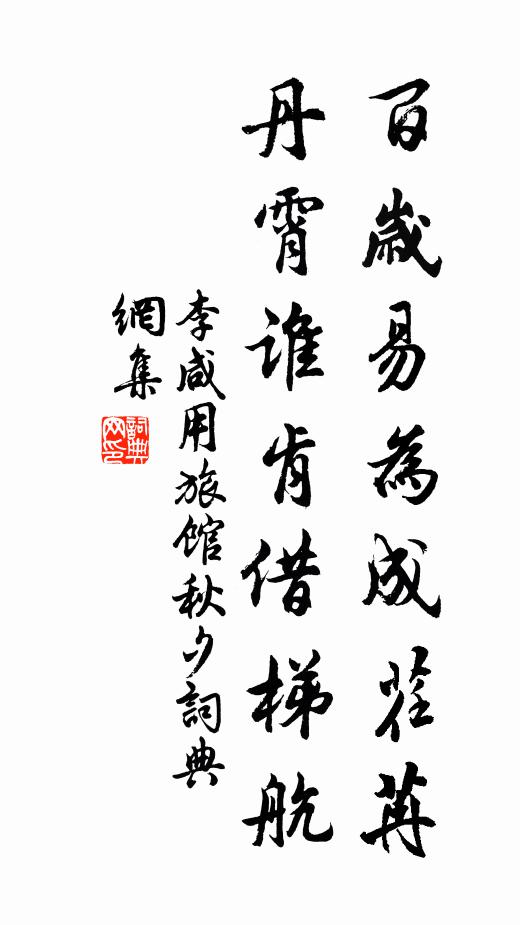 百歲易為成荏苒
丹霄誰肯借梯航
李咸用旅館秋夕詞典
網集
詞典
网印